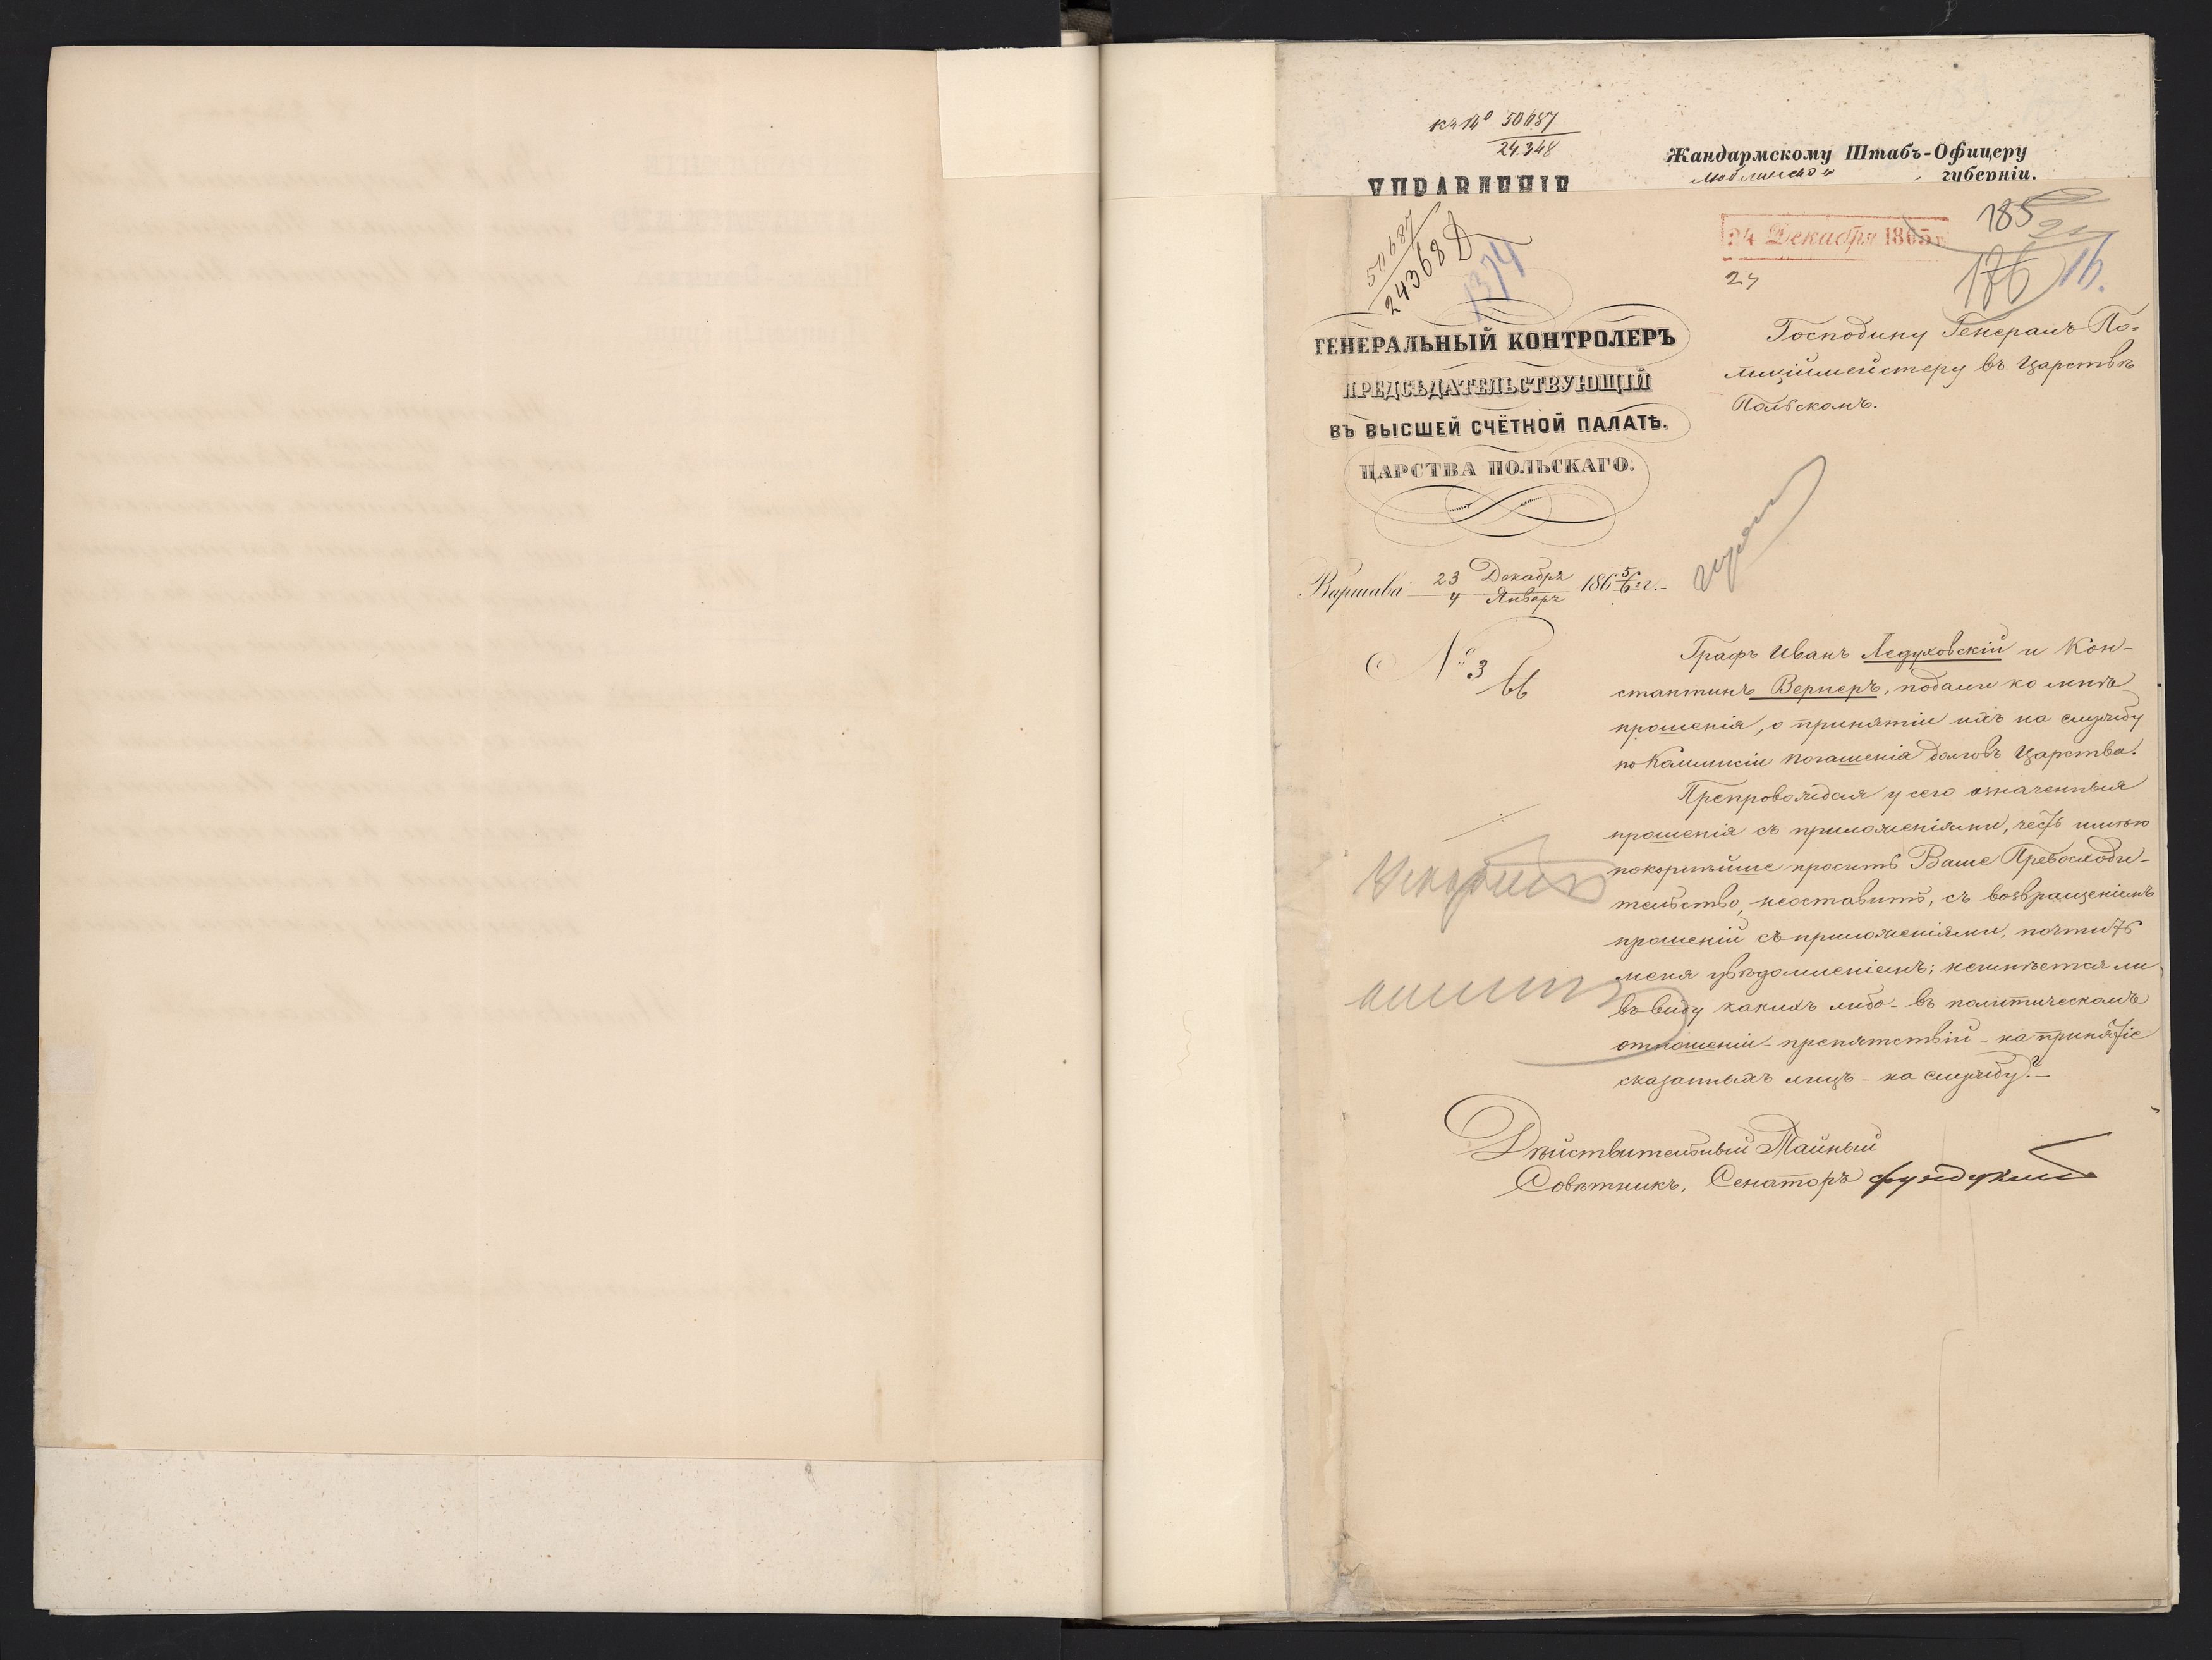 къ № 50687
24.348
Жандармскому Штабъ-Офицеру
Люблинской губерніи.
УПРАВЛЕНІЕ
50687
24368 D
1374
24 Декабря 1865 г.
24
185
186
16.
ГЕНЕРАЛЬНЫЙ КОНТРОЛЕРЪ
ПРЕДСѢДАТЕЛЬСТВУЮЩІЙ
ВЪ ВЫСШЕЙ СЧЁТНОЙ ПАЛАТѢ.
ЦАРСТВА ПОЛЬСКАГО.
Господину Генералъ-По-
лиціймейстеру въ Царствѣ
Польскомъ.
Варшава 23 Декабря / 4 Январь 1865/6 г.
№ 3
66
Графъ Иванъ Ледуховскій и Кон-
стантинъ Вернеръ, подали ко мнѣ
прошенія, о принятіи ихъ на службу
по Коммисіи погашенія долговъ Царства.
Препровождая у сего означенныя
прошенія съ приложеніями, честь имѣю
покорнѣйше просить Ваше Превосходи-
тельство, неоставить, съ возвращеніемъ
прошеній съ приложеніями, почтить
меня увѣдомленіемъ; неимѣется ли
въ виду какихъ либо - въ политическомъ
отношеніи - препятствій - на принятіе
сказанныхъ лицъ - на службу? -
Дѣйствительный Тайный
Совѣтникъ, Сенаторъ Фундуклей